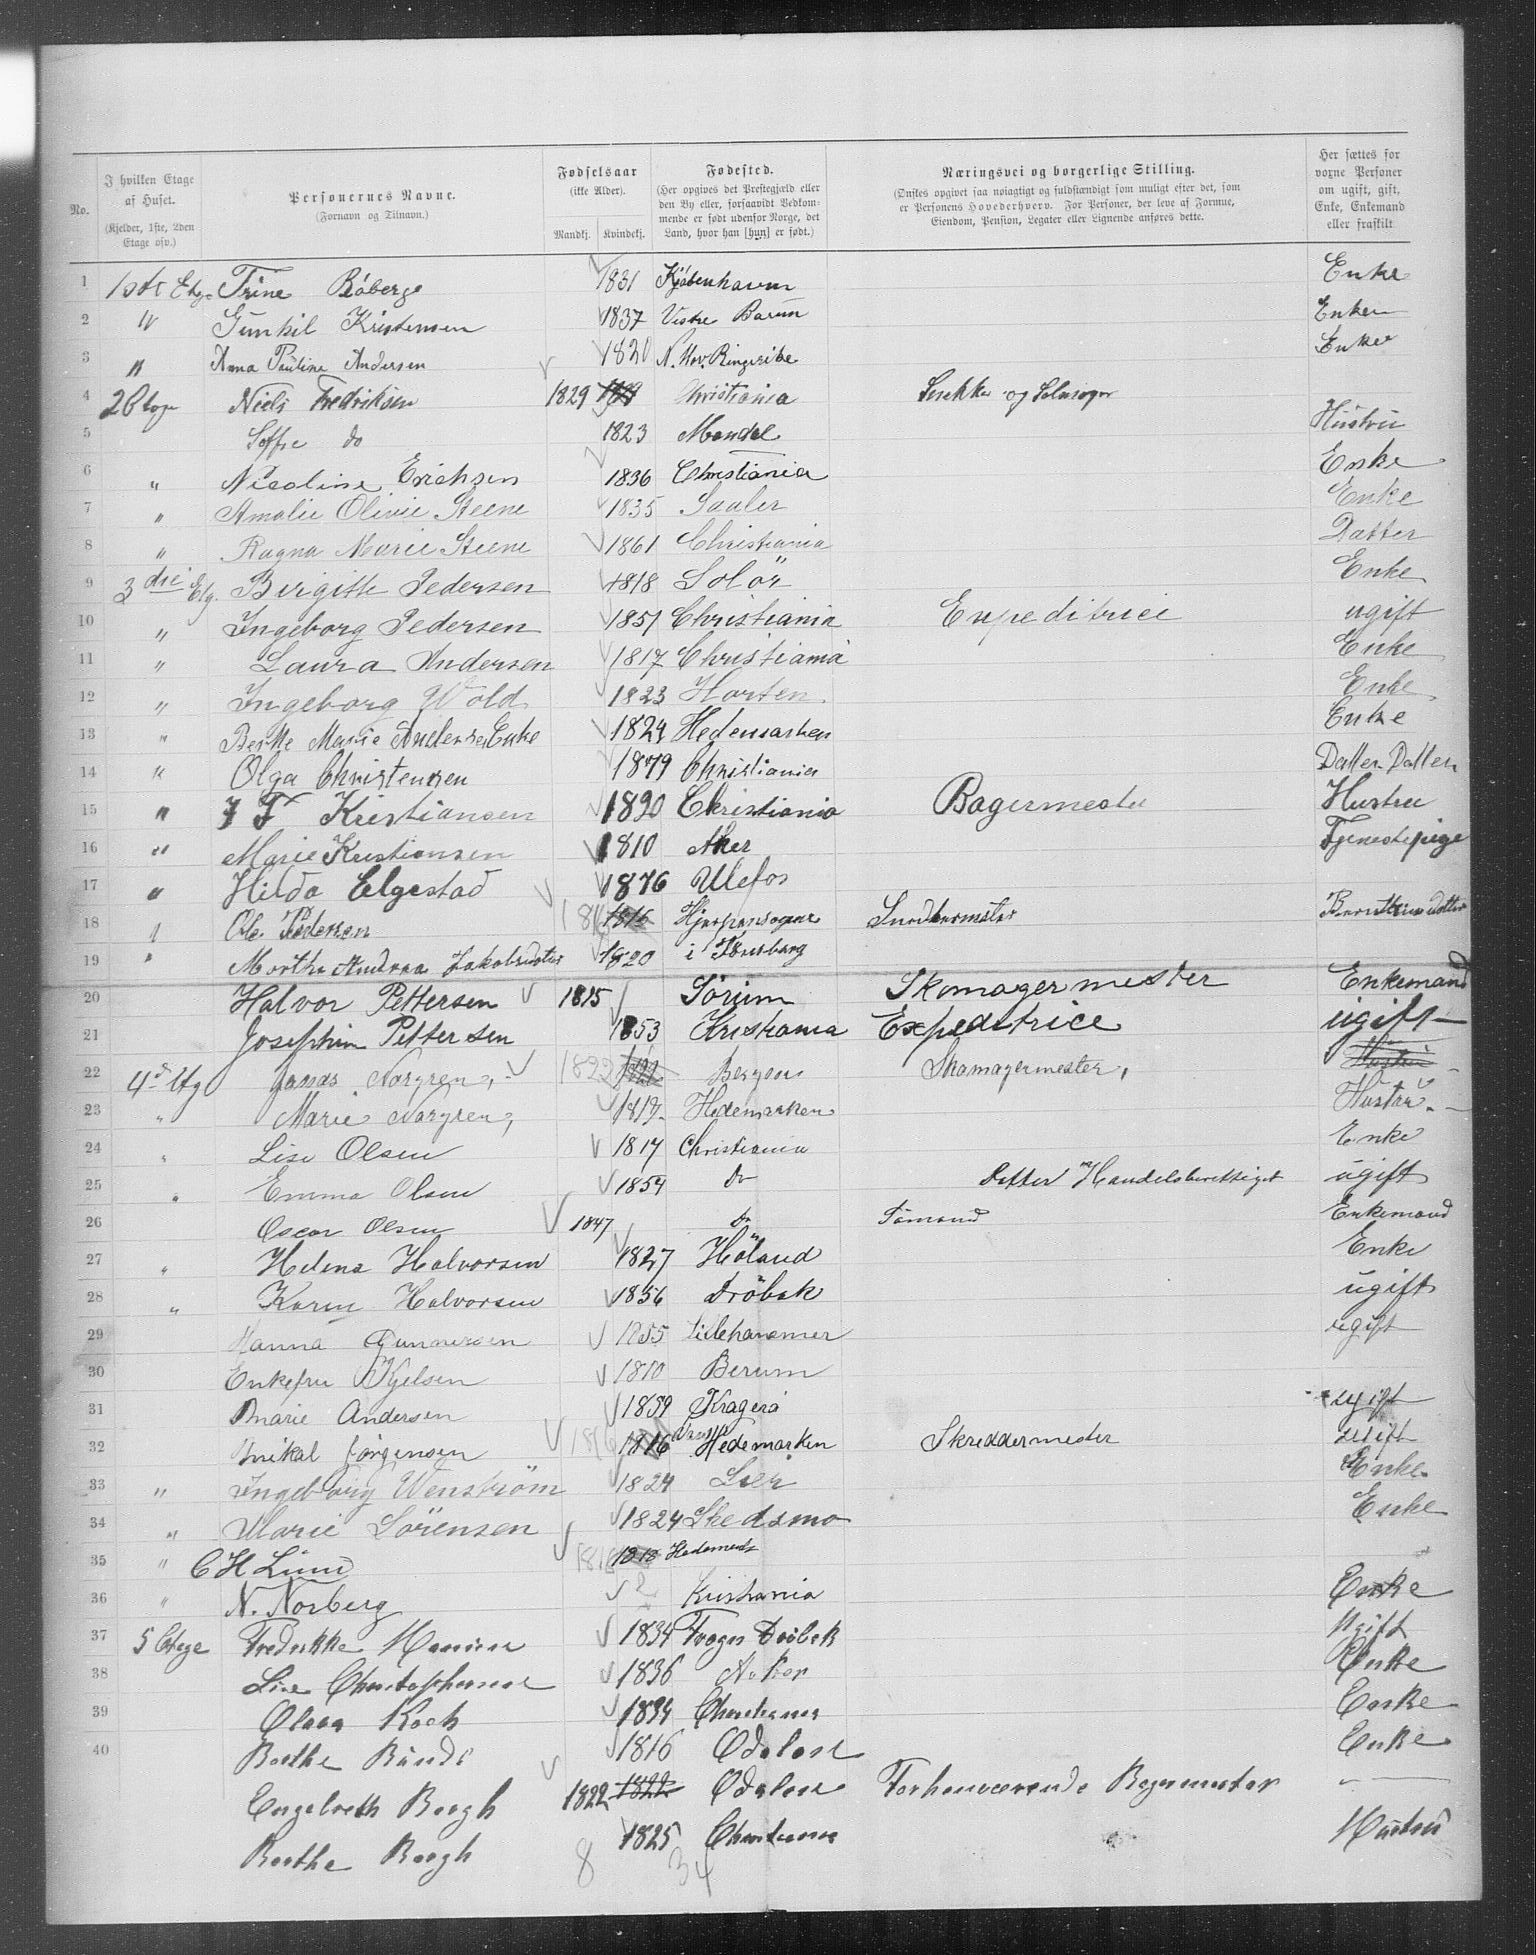 No.
I hvilken Etage af Huset. (Kjelder, 1ste, 2den Etage osv.)
Personernes Navne. (Fornavn og Tilnavn.)
Fødselsaar (ikke Alder). Mandkj. Kvindekj.
Fødested. (Her opgives det Prestegjæld eller den By eller, forsaavidt Vedkommende er født udenfor Norge, det Land, hvor han [hun] er født.)
Næringsvei og borgerlige Stilling. (Ønskes opgivet saa nøiagtigt og fuldstændigt som muligt efter det, som er Personens Hovederhverv. For Personer, der leve af Formue, Eiendom, Pension, Legater eller Lignende anføres dette.
Her sættes for vorne Personer om ugift, gift, Enke, Enkemand eller fraskilt
1 1ste Etage Trine Röberge 1831 Kjöbenhavn Enke
2 " Gunhil Kristensen 1837 Vestre Barum Enke
3 " Anna Pauline Andersen 1820 N. Hov. Ringerike Enke
4 2 Etage Niels Fredriksen 1829 Christiania Snekker og
5 Soffie do 1823 Mandal Hustru
6 " Nicoline Erichsen 1836 Christiania Enke
7 " Amalie Olivie Steene 1835 Saaler Enke
8 " Ragna Marie Steene 1861 Christiania Datter
9 3die Etg. Birgitte Pedersen 1818 Solör Enke
10 " Ingeborg Pedersen 1851 Christiania Expeditrice ugift
11 " Laura Andersen 1817 Christiania Enke
12 " Ingeborg Wold 1823 Horten Enke
13 " Berthe Marie Andersen Enke 1824 Hedemarken Enke
14 " Olga Christensen 1879 Christiania Datter Datter
15 " J F Kristiansen 1820 Christiania Bagermester Hustru
16 " Marie Kristiansen 1810 Aker Tjenestepige
17 " Hilda Elgestad 1876 Ulefos
18 " Ole Pedersen 1816 Hjerpensogne
19 " Marthe Andrea Jakobsdatter 1820 i Tönsberg
20 Halvor Pettersen 1815 Sörum Skomagermester Enkemand
21 Josephine Pettersen 1853 Kristiania Expeditrice ugift
22 4de Etg Jonas Norgren, 1822 Bergen Skomagermester, Hustru
23 " Marie Norgren, 1819 Hedemarken Hustru
24 " Lise Olsen 1817 Christiania Enke
25 " Emma Olsen 1854 Do Datter Handelsberettiget ugift
26 Oscar Olsen 1847 Do Sömand Enkemand
27 " Helena Halvorsen 1827 Höland Enke
28 " Karen Halvorsen 1856 Dröbak ugift
29 Hanna Gunnersen 1855 Lillehammer ugift
30 Enkefru Kjelsen 1810 Berum
31 Marie Andersen 1859 Kragerö ugift
32 Mikal Jörgensen 1816 Hedemarken Skreddermester ugift
33 " Ingeborg Wenström 1824 Lier Enke
34 " Marie Sörensen 1824 Skedsmo Enke
35 " C H Lund 1818
36 " N. Norberg Kristiania Enke
37 5 Etage Fredrikke Hansen 1834 Frogn Dröbak Ugift
38 Lise Christophersen 1836 Aker Enke
39 Olava Koch 1834 Christiania Enke
40 Berthe Rände 1816 Odalen Enke
Engelbreth Borgh 1822 1822 Odalen Forhenværende Bagermester
Berthe Borgh 1825 Christiania Hustru
8 34